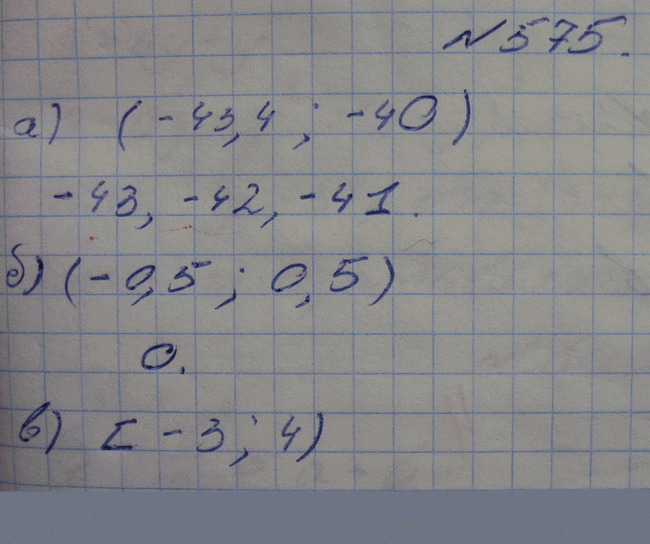 №575.
а) (-43,4 ; -40)
-43, -42, -41.
б) (-0,5 ; 0,5)
0.
в) [-3; 4)